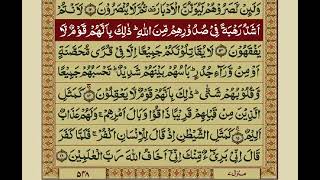 وَلَئِنْ نَّصَرُوْهُمْ لَيُوَلُّنَّ الْاَدْبَارَ ثُمَّ لَا يُنْصَرُوْنَ ﴿۱۲﴾ لَاَنْتُمْ
اَشَدُّ رَهْبَةً فِیْ صُدُوْرِهِمْ مِّنَ اللّٰهِ ؕ ذٰلِكَ بِاَنَّهُمْ قَوْمٌ لَّا
يَفْقَهُوْنَ ﴿۱۳﴾ لَا يُقَاتِلُوْنَكُمْ جَمِيْعًا اِلَّا فِیْ قُرًی مُّحَصَّنَةٍ
اَوْ مِنْ وَّرَآءِ جُدُرٍ ؕ بَاْسُهُمْ بَيْنَهُمْ شَدِيْدٌ ؕ تَحْسَبُهُمْ جَمِيْعًا
وَّقُلُوْبُهُمْ شَتّٰی ؕ ذٰلِكَ بِاَنَّهُمْ قَوْمٌ لَّا يَعْقِلُوْنَ ﴿۱۴﴾ كَمَثَلِ
الَّذِيْنَ مِنْ قَبْلِهِمْ قَرِيْبًا ذَاقُوْا وَبَالَ اَمْرِهِمْ ۚ وَلَهُمْ عَذَابٌ
اَلِيْمٌ ﴿۱۵﴾ كَمَثَلِ الشَّيْطٰنِ اِذْ قَالَ لِلْاِنْسَانِ اكْفُرْ ۚ فَلَمَّا كَفَرَ
قَالَ اِنِّیْ بَرِیْٓءٌ مِّنْكَ اِنِّیْۤ اَخَافُ اللّٰهَ رَبَّ الْعٰلَمِيْنَ ﴿۱۶﴾
منزل ۷
۵۳۸